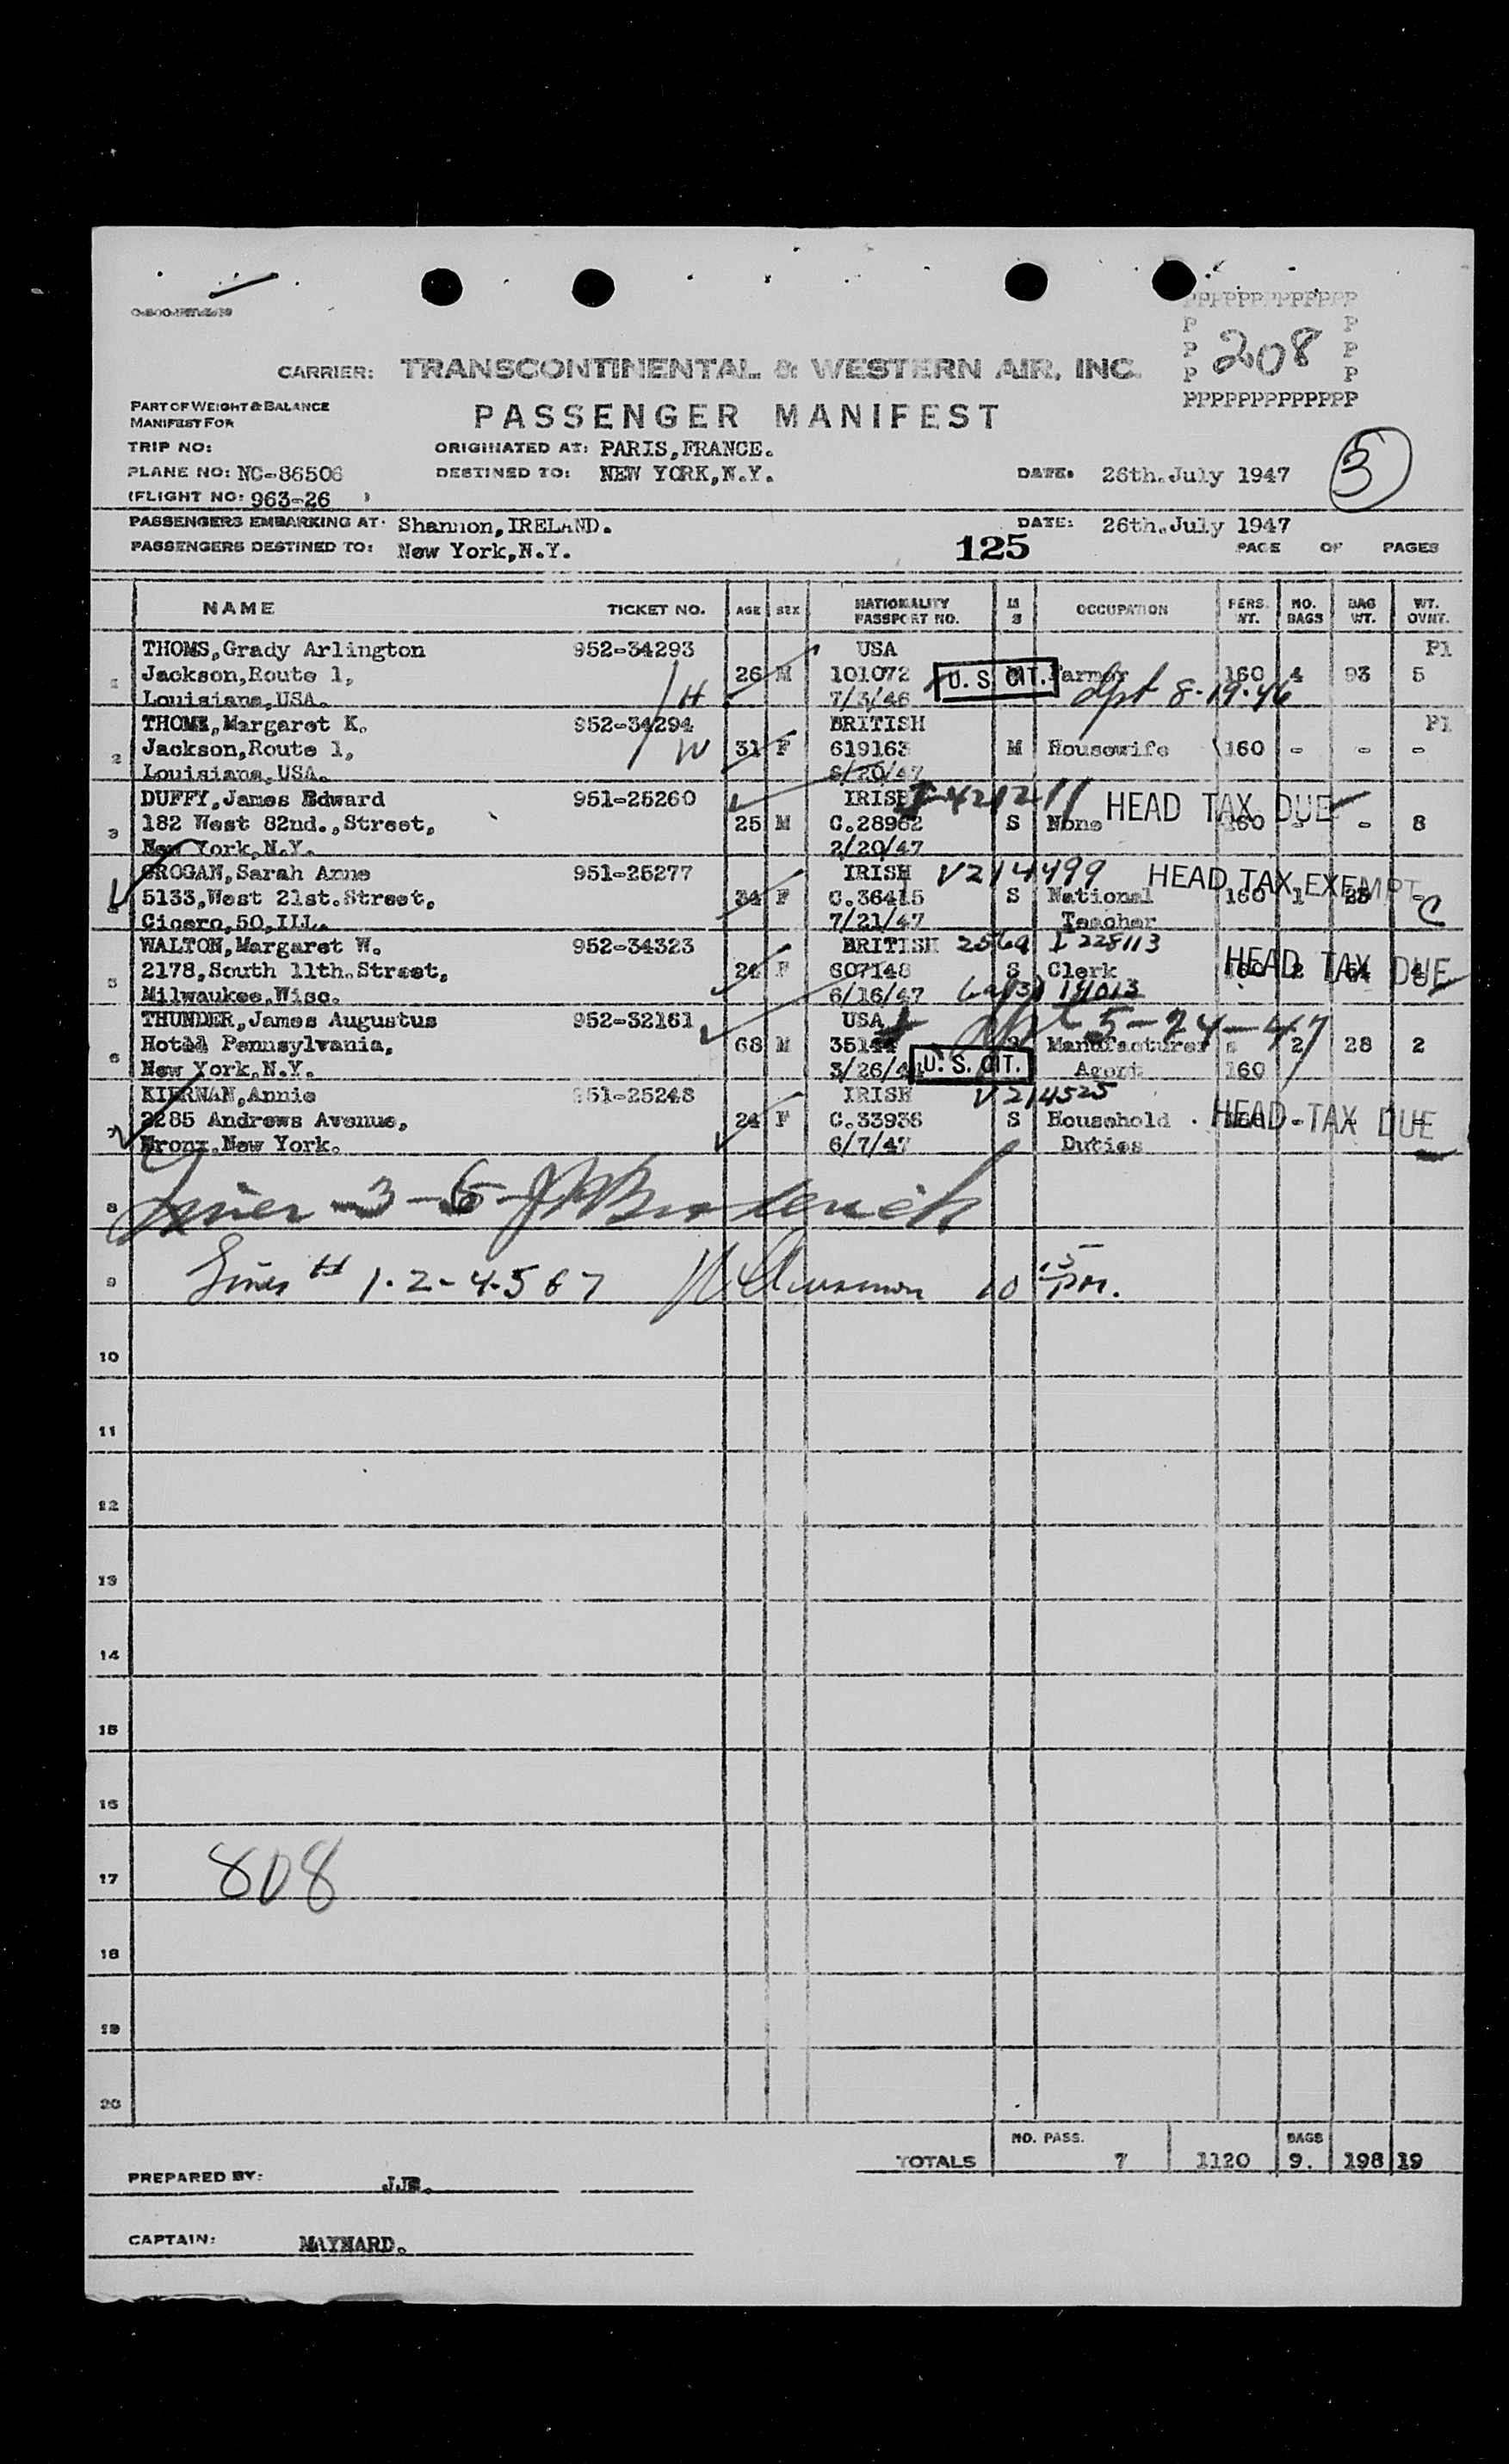 208
CARRIER: TRANSCONTINENTAL & WESTERN AIR, INC.
PART OF WEIGHT & BALANCE
MANIFEST FOR
PASSENGER MANIFEST
TRIP NO: ORIGINATED AT: PARIS,FRANCE.
PLANE NO: NC-86506 DESTINED TO: NEW YORK,N.Y. DATE. 26th.July 1947
(FLIGHT NO: 963-26 )
PASSENGERS EMBARKING AT: Shannon,IRELAND. DATE: 26th.July 1947
PASSENGERS DESTINED TO: New York,N.Y. 125 PAGE OF PAGES
NAME TICKET NO. AGE SEX NATIONALITY PASSPORT NO. M S OCCUPATION PERS. WT. NO. BAGS BAG WT. WT. OVNT.
THOMS,Grady Arlington 952-34293 USA P1
1 Jackson,Route 1, 26 M 101072 U. S. CIT. Farmer 160 4 93 5
Louisiana,USA. H 7/3/46 8-19-46
THOMS,Margaret K. 952-34294 BRITISH P1
2 Jackson,Route 1, W 31 F 619163 M Housewife 160 - - -
Louisiana,USA. 6/20/47
DUFFY,James Edward 951-25260 IRISH HEAD TAX DUE
3 182 West 82nd.,Street, 25 M C.28962 S None 160 - - 8
New York,N.Y. 2/20/47
GROGAN,Sarah Anne 951-25277 IRISH V214499 HEAD TAX EXEMPT
5133,West 21st.Street, 34 F C.36415 S National 160 1 C
Cicero,50,ILL. 7/21/47 Teacher
WALTON,Margaret W. 952-34323 BRITISH I 228113
5 2178,South 11th.Street, 24 F 607148 S Clerk HEAD TAX DUE
Milwaukee,Wisc. 6/16/47
THUNDER,James Augustus 952-32161 USA 5-24-47
6 Hotel Pennsylvania, 68 M Manufacturers 2 28 2
New York,N.Y. U. S. CIT. Agent 160
KIERNAN,Annie 951-25248 IRISH V214525
7 2285 Andrews Avenue, 24 F C.33936 S Household HEAD TAX DUE
Bronx,New York. 6/7/47 Duties
8
9 Lines # 1-2-4-5 6 7 10 15 PM.
10
11
12
13
14
15
16
17 808
18
19
20
NO. PASS. BAGS
TOTALS 7 1120 9. 198 19
PREPARED BY:
CAPTAIN: MAYNARD.